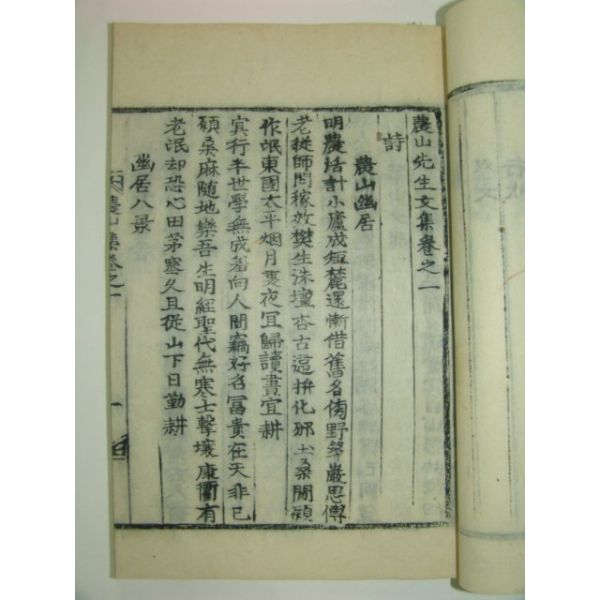 農山先生文集卷之一
詩
農山幽居
明農活計小廬成短麓還慚借舊名傍野築巖思傅
老從師問稼效樊生洙壇杏古遑拚化邠土桑閒願
作氓東國太平烟月裏夜宜歸讀晝宜耕
賓行半世學無成羞向人間竊好名富貴在天非已
願桑麻隨地樂吾生明經聖代無寒士擊壤康衢有
老氓却恐心田茅塞久且從山下日勤耕
幽居八景
農山集卷之一
一